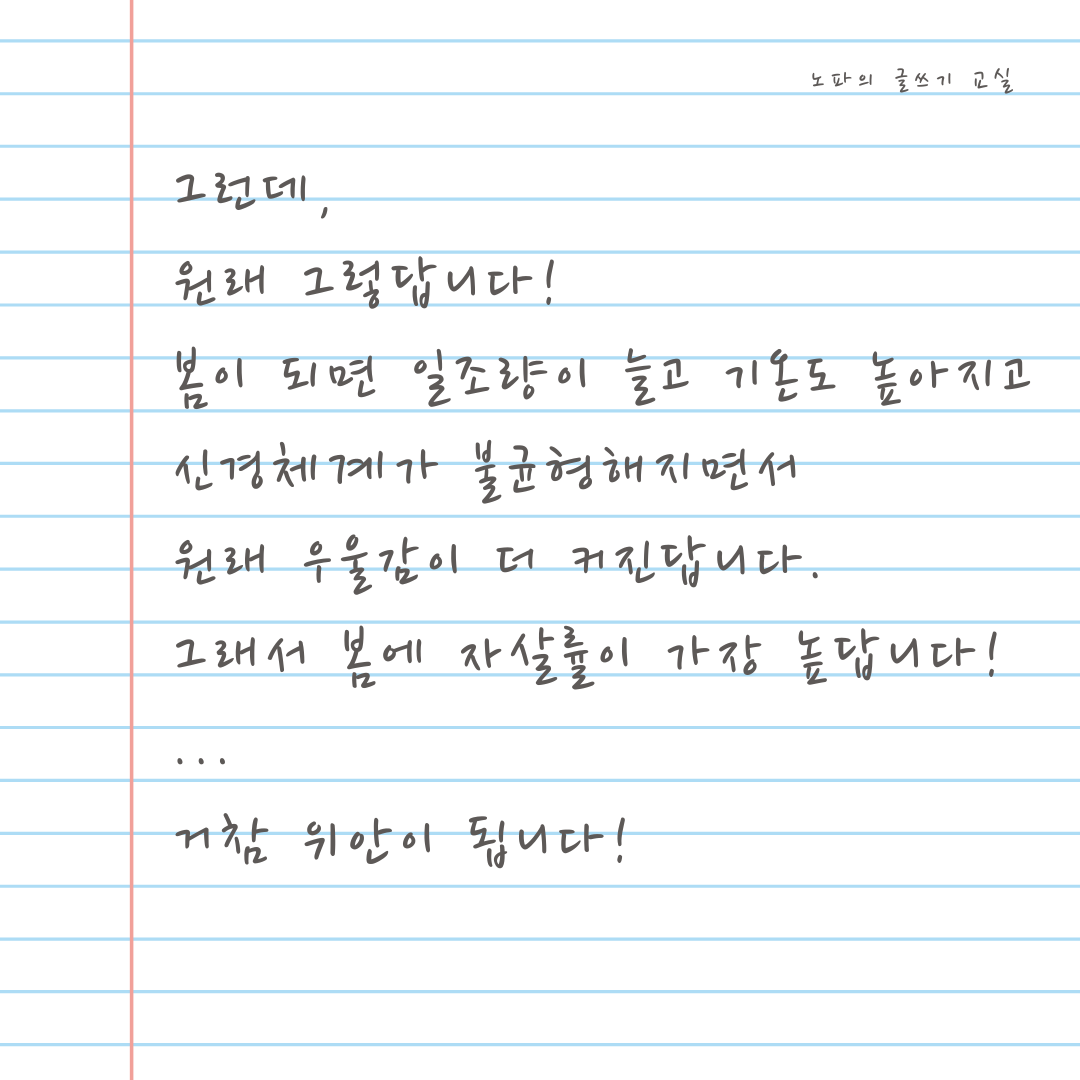 노파의 글쓰기 교실
그런데,
원래 그렇답니다!
봄이 되면 일조량이 늘고 기온도 높아지고
신경체계가 불균형해지면서
원래 우울감이 더 커진답니다.
그래서 봄에 자살률이 가장 높답니다!
...
거참 위안이 됩니다!